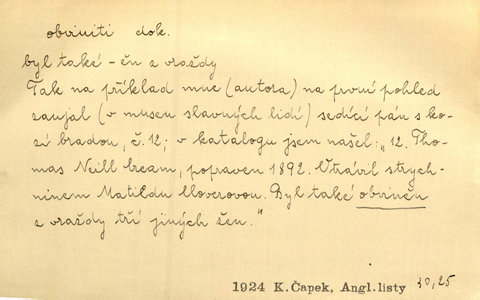 obviniti dok.
byl také - ěn z vraždy
Tak na příklad mne (autora) na první pohled
zaujal (v museu slavných lidí) sedící pán s ko-
zí bradou, č. 12; v katalogu jsem našel: „12. Tho-
mas Neill Cream, popraven 1892. Otrávil strych-
ninem Matildu Cloverovou. Byl také obviněn
z vraždy tří jiných žen."
1924 K. Čapek, Angl. listy 30,25